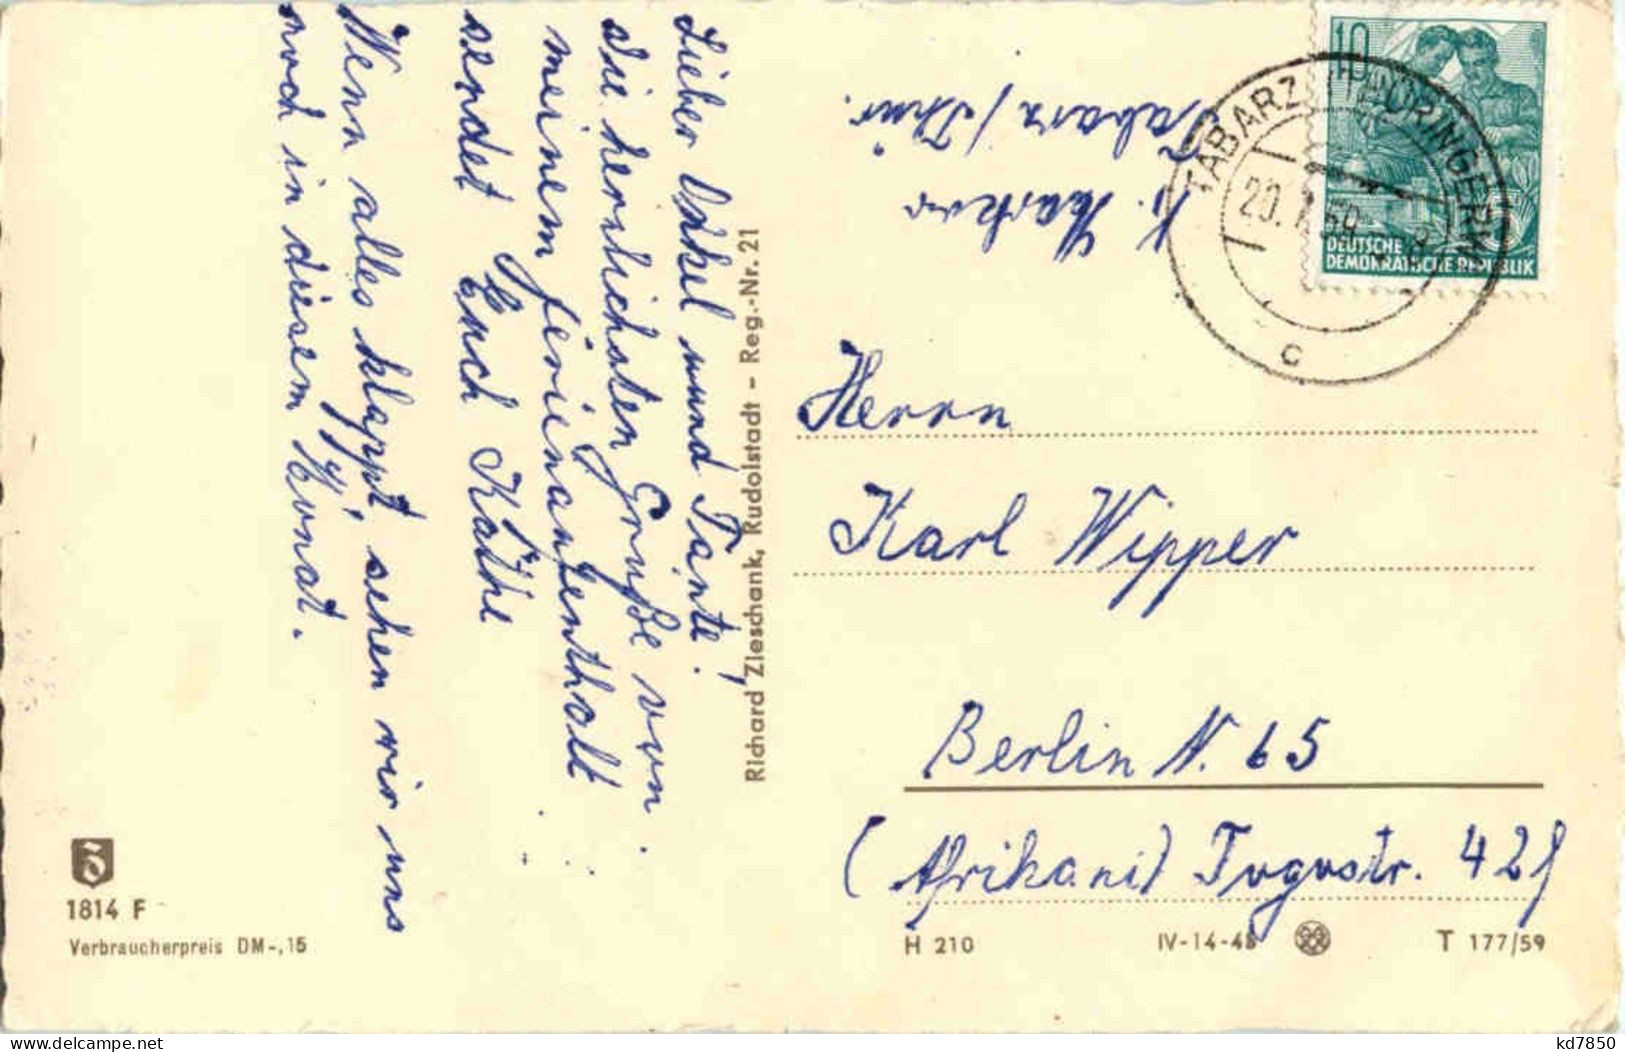 Lieber Onkel und Tante!
Die herzlichsten Grüße von
meinem Ferienaufenthalt
sendet Euch Käthe
Wenn alles klappt, sehen wir uns
noch in diesem Monat.
Richard Zieschank, Rudolstadt - Reg.-Nr. 21
Tabarz / Thür.
10
DEUTSCHE
DEMOKRATISCHE REPUBLIK
TABARZ (THÜRINGERW
c
Herrn
Karl Wipper
Berlin N. 65
(Afrikani) Togostr. 42f
1814 F
Verbraucherpreis DM-,15
H 210
IV-14-48
T 177/59
delcampe.net
kd7850